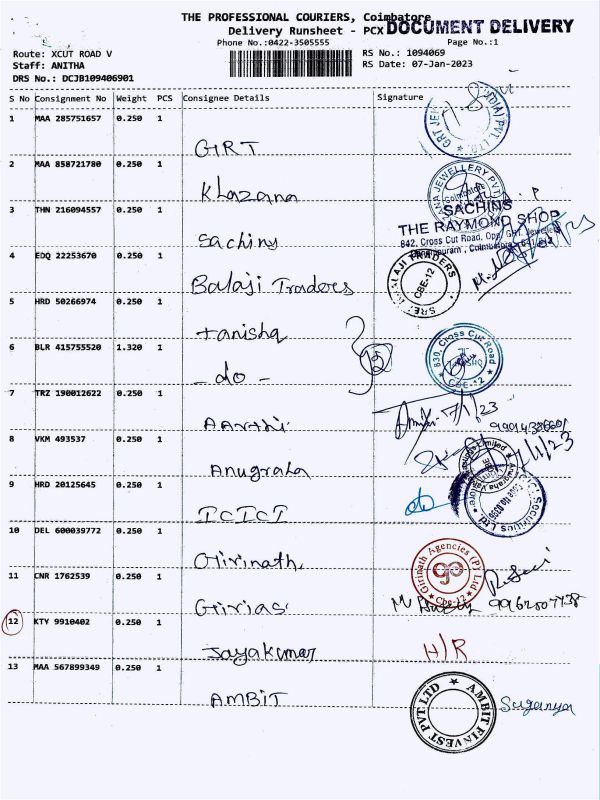 THE PROFESSIONAL COURIERS, Coimbatore
DOCUMENT DELIVERY
Delivery Runsheet - PCX
Phone No.:0422-3505555
Page No.:1
Route: XCUT ROAD V
RS No.: 1094069
Staff: ANITHA
RS Date: 07-Jan-2023
DRS No.: DCJB109406901
S No Consignment No Weight PCS Consignee Details Signature
1 MAA 285751657 0.250 1
GRT
2 MAA 858721780 0.250 1
Khazana
SACHINS
THE RAYMOND SHOP
842, Cross Cut Road, Opp. GRT. Jewellers
3 THN 216094557 0.250 1
Sachins
4 EDQ 22253670 0.250 1
Balaji Traders
SREE BALAJI TRADERS
CBE-12
5 HRD 50266974 0.250 1
tanishq
830, Cross Cut Road
CBE-12
6 BLR 415755520 1.320 1
- do -
7 TRZ 190012622 0.250 1
Aarthi
7/1/23
8 VKM 493537 0.250 1
Anugraha
7/1/23
9 HRD 20125645 0.250 1
ICICI
10 DEL 600039772 0.250 1
Girinath
Girinath Agencies (P) Ltd
Cbe-12
11 CNR 1762539 0.250 1
Girias
12 KTY 9910402 0.250 1
Jayakumar
H/R
13 MAA 567899349 0.250 1
AMBIT
AMBIT FINVEST PVT LTD
Suganya